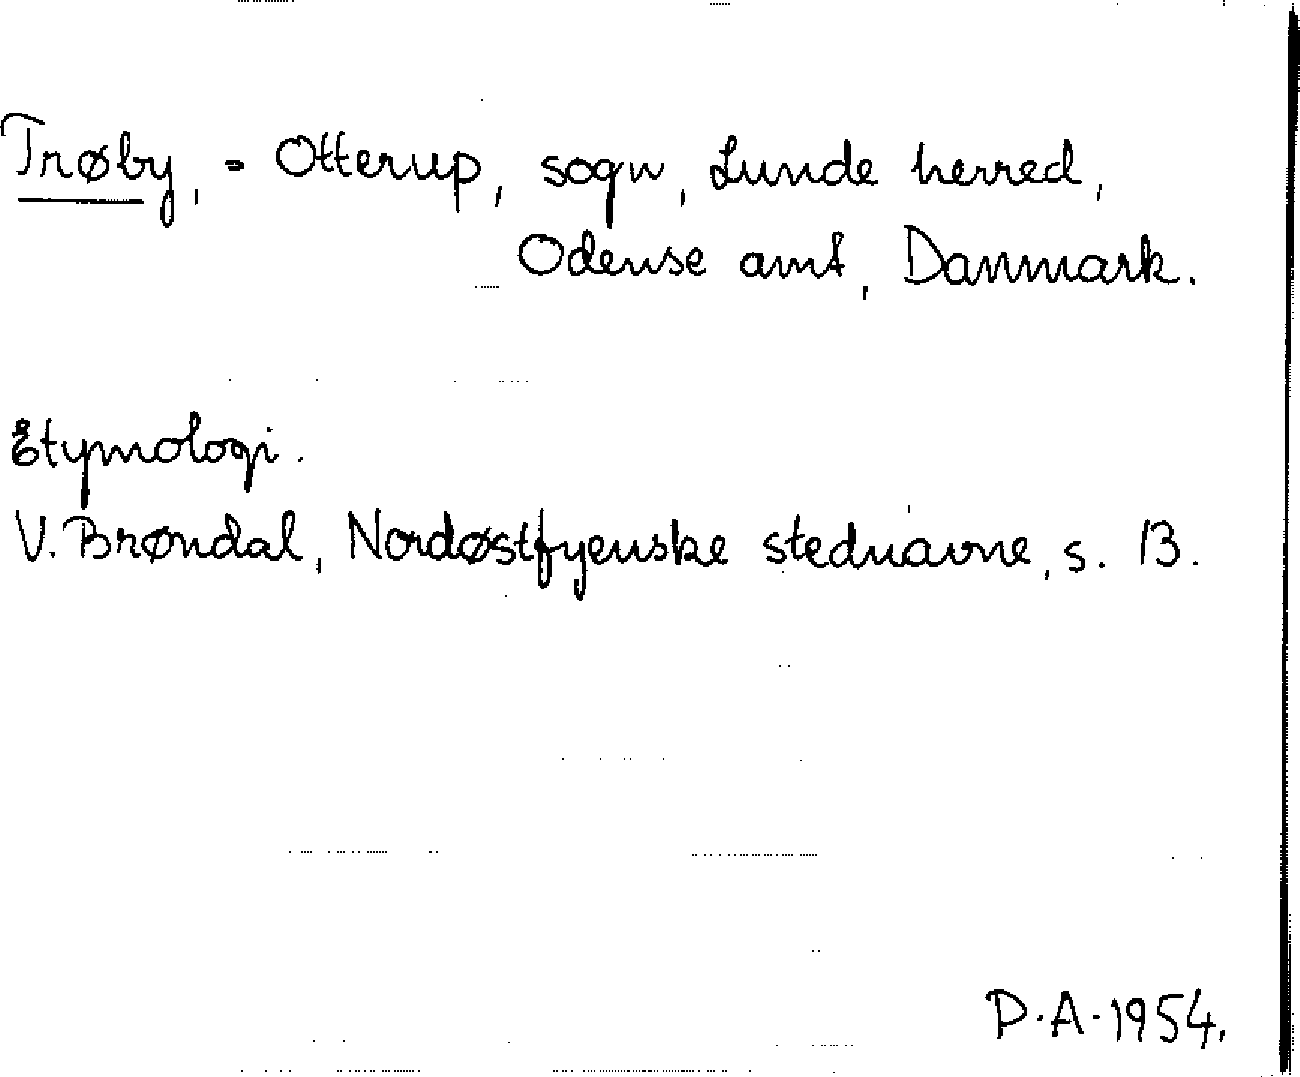 Trøby, = Otterup, sogn, Lunde herred,
Odense amt, Danmark.
Etymologi.
V. Brøndal, Nordøstfyenske stednavne, s. 13.
D.A. 1954.